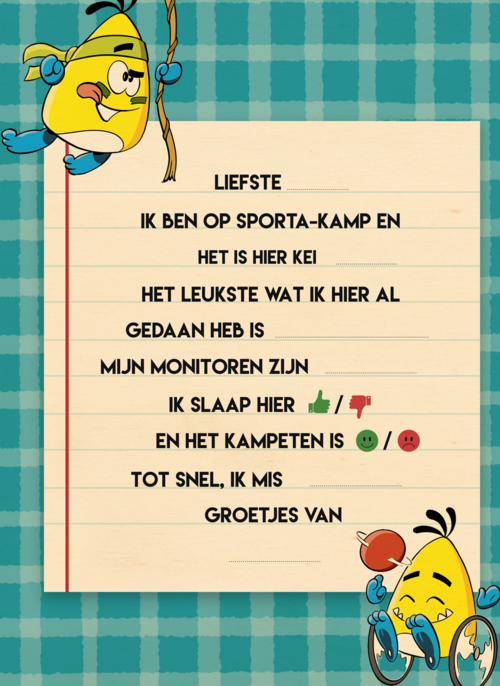 LIEFSTE
IK BEN OP SPORTA-KAMP EN
HET IS HIER KEI
HET LEUKSTE WAT IK HIER AL
GEDAAN HEB IS
MIJN MONITOREN ZIJN
IK SLAAP HIER 👍 / 👎
EN HET KAMPETEN IS 🙂 / ☹
TOT SNEL, IK MIS
GROETJES VAN